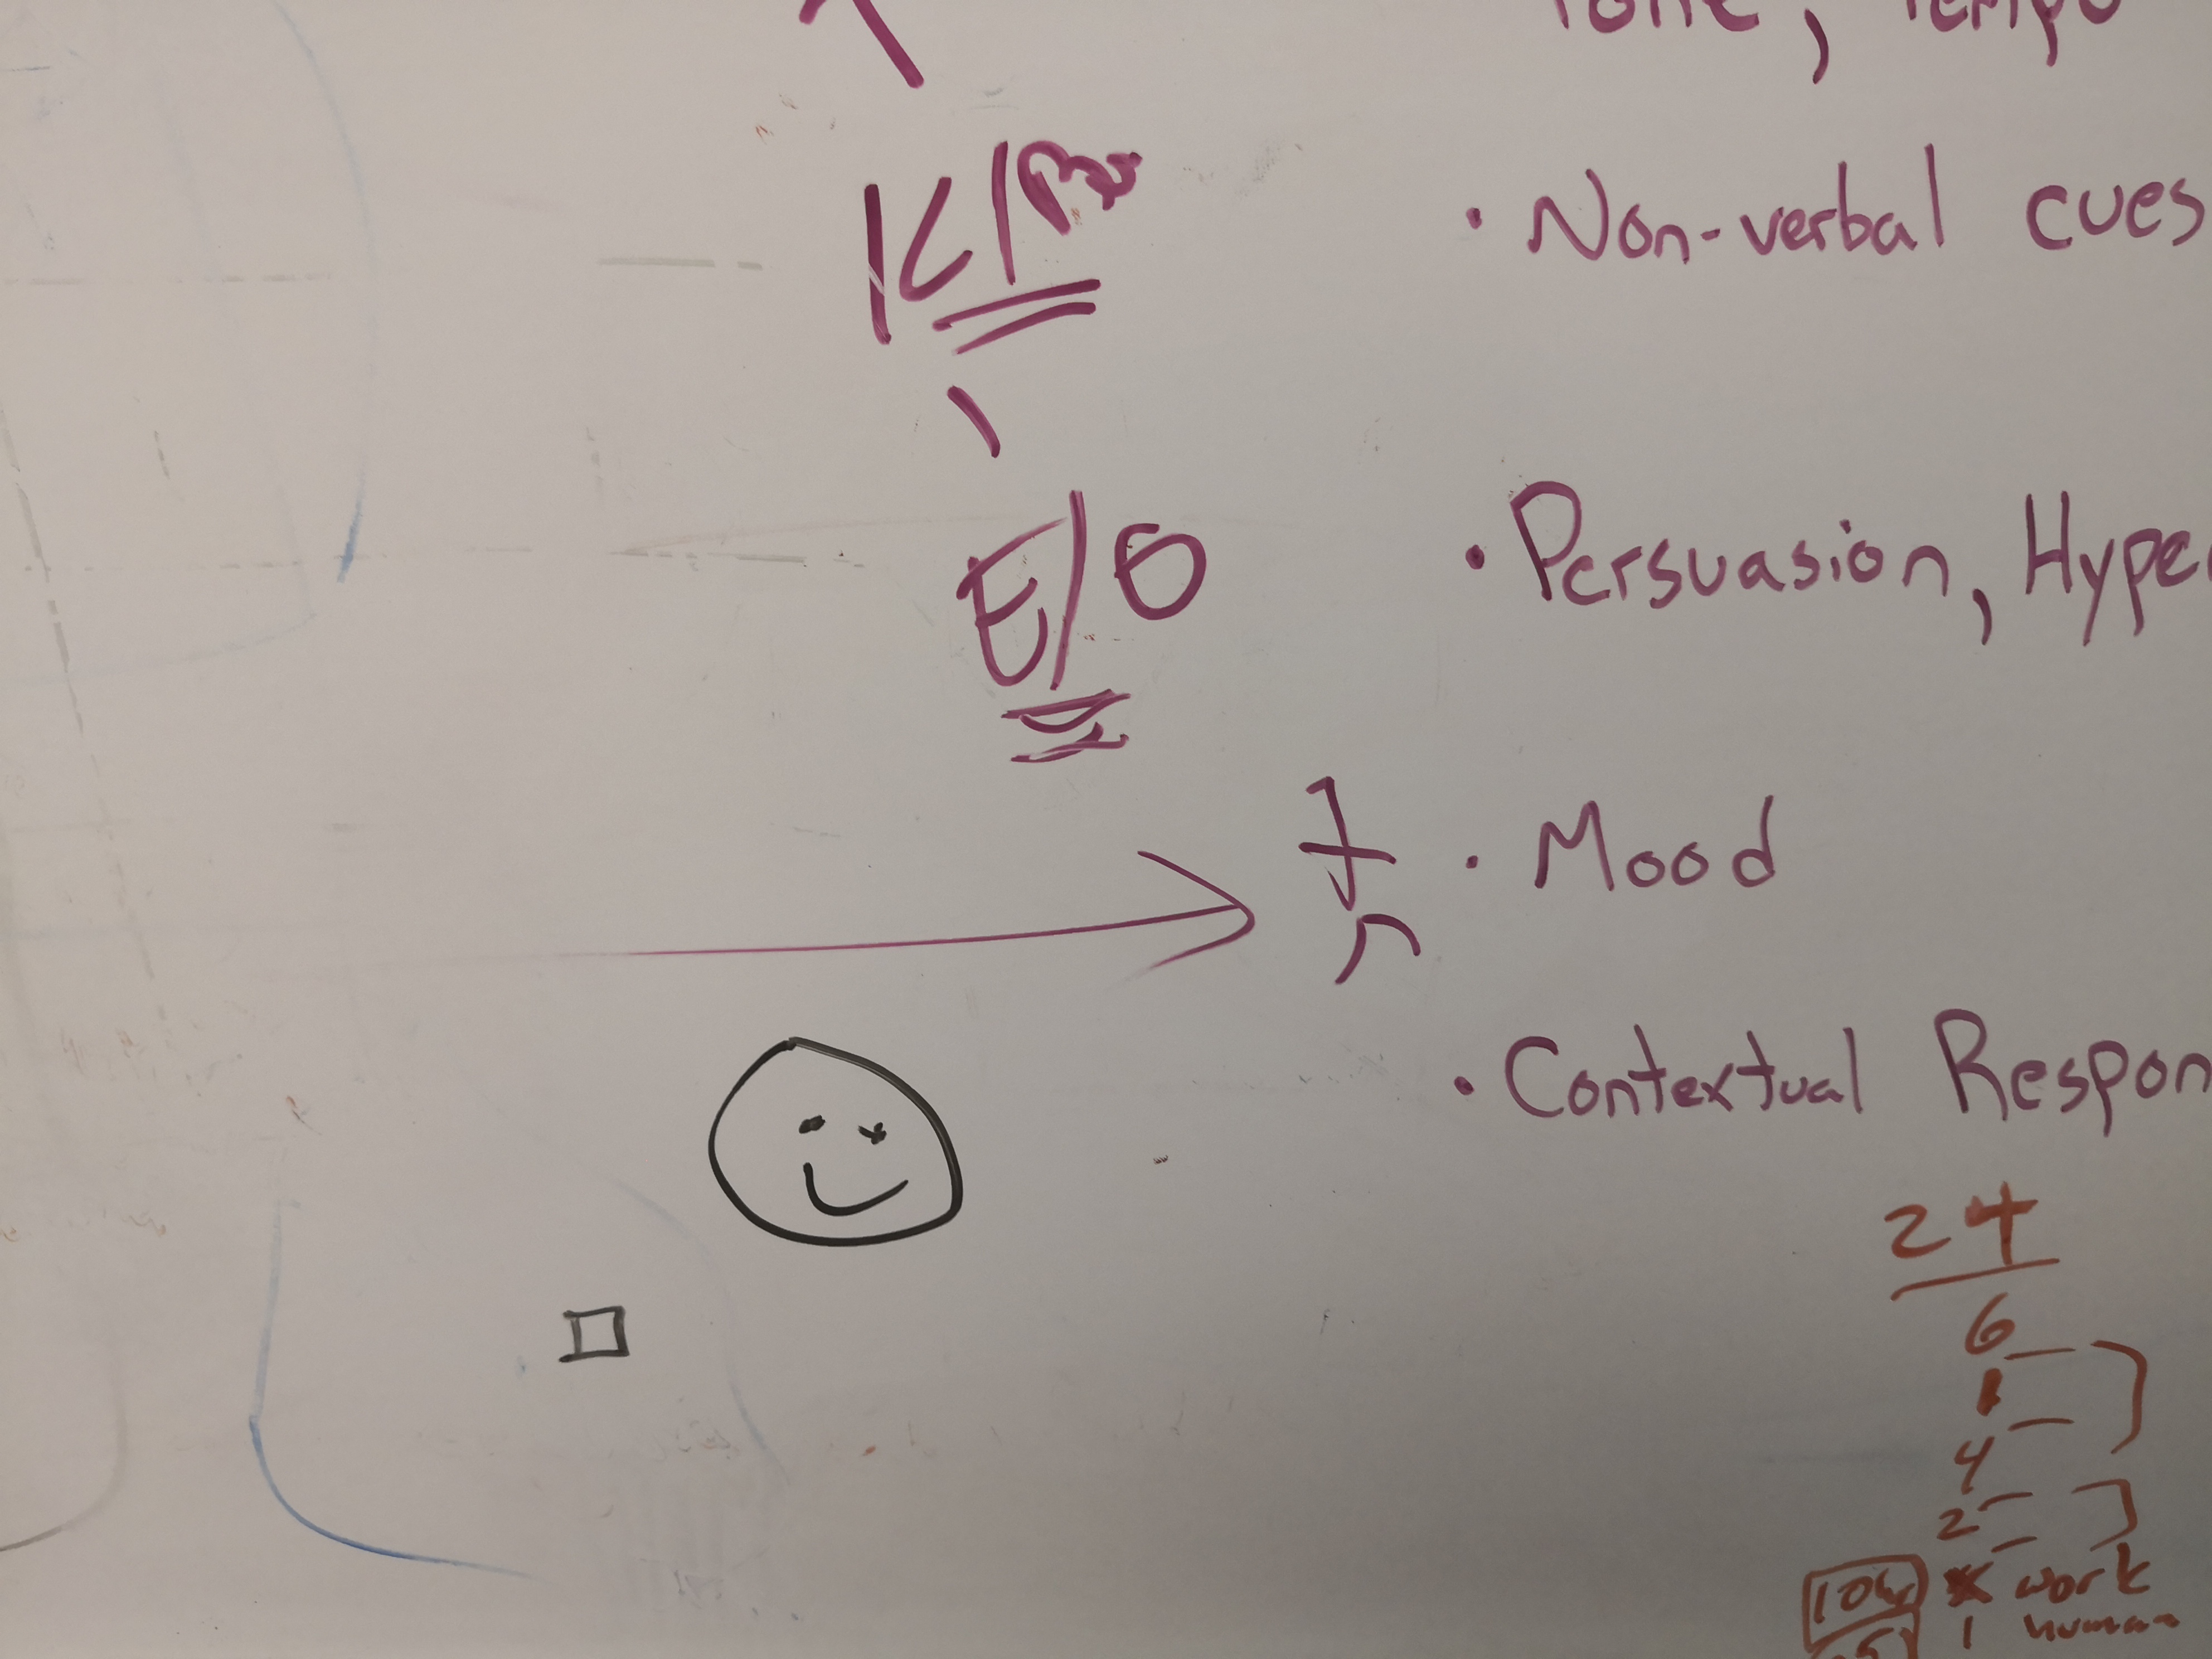 Tone, Tempo
• Non-verbal cues
E/O
• Persuasion, Hype
• Mood
• Contextual Respon
24
6
1
4
2
work
1 human